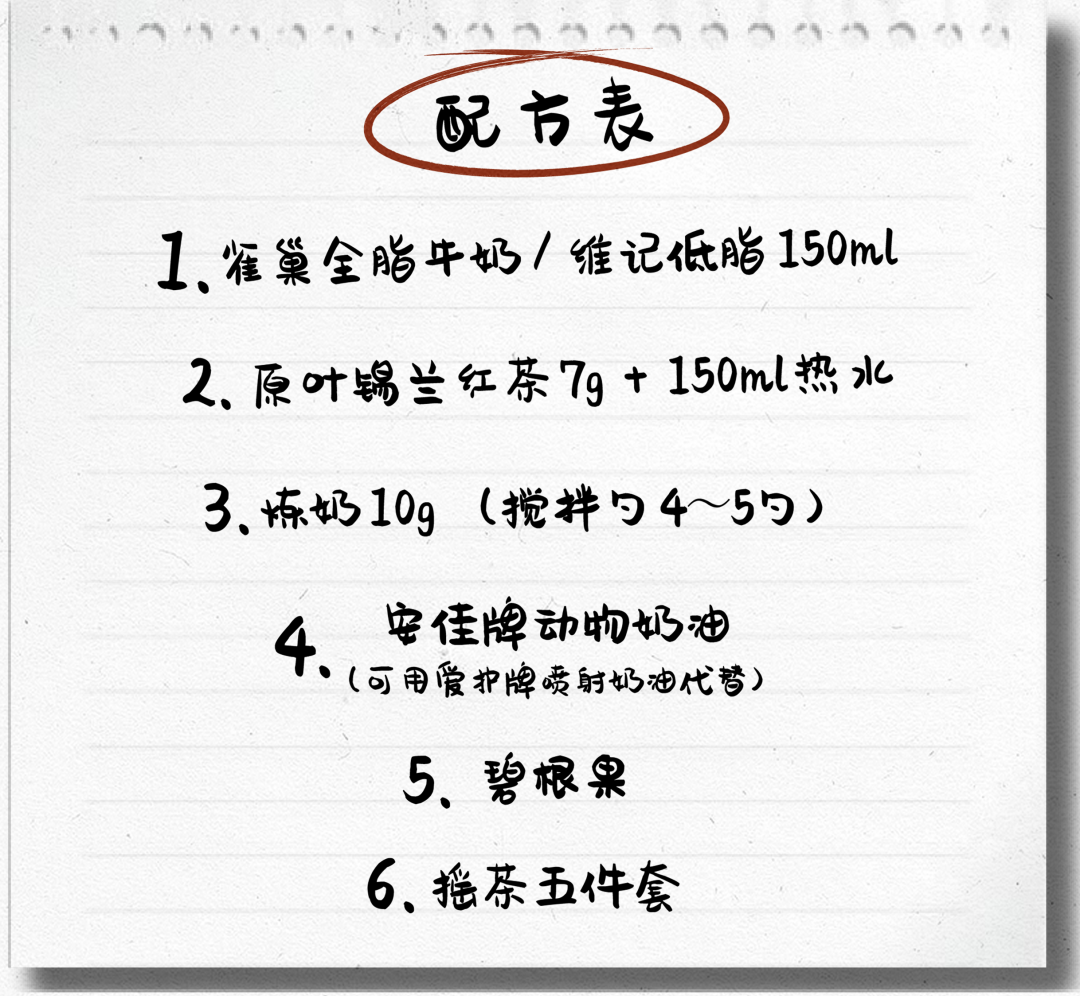 配方表
1.雀巢全脂牛奶/维记低脂150ml
2.原叶锡兰红茶7g + 150ml热水
3.炼奶10g （搅拌勺4～5勺）
4.安佳牌动物奶油
（可用爱护牌喷射奶油代替）
5.碧根果
6.摇茶五件套